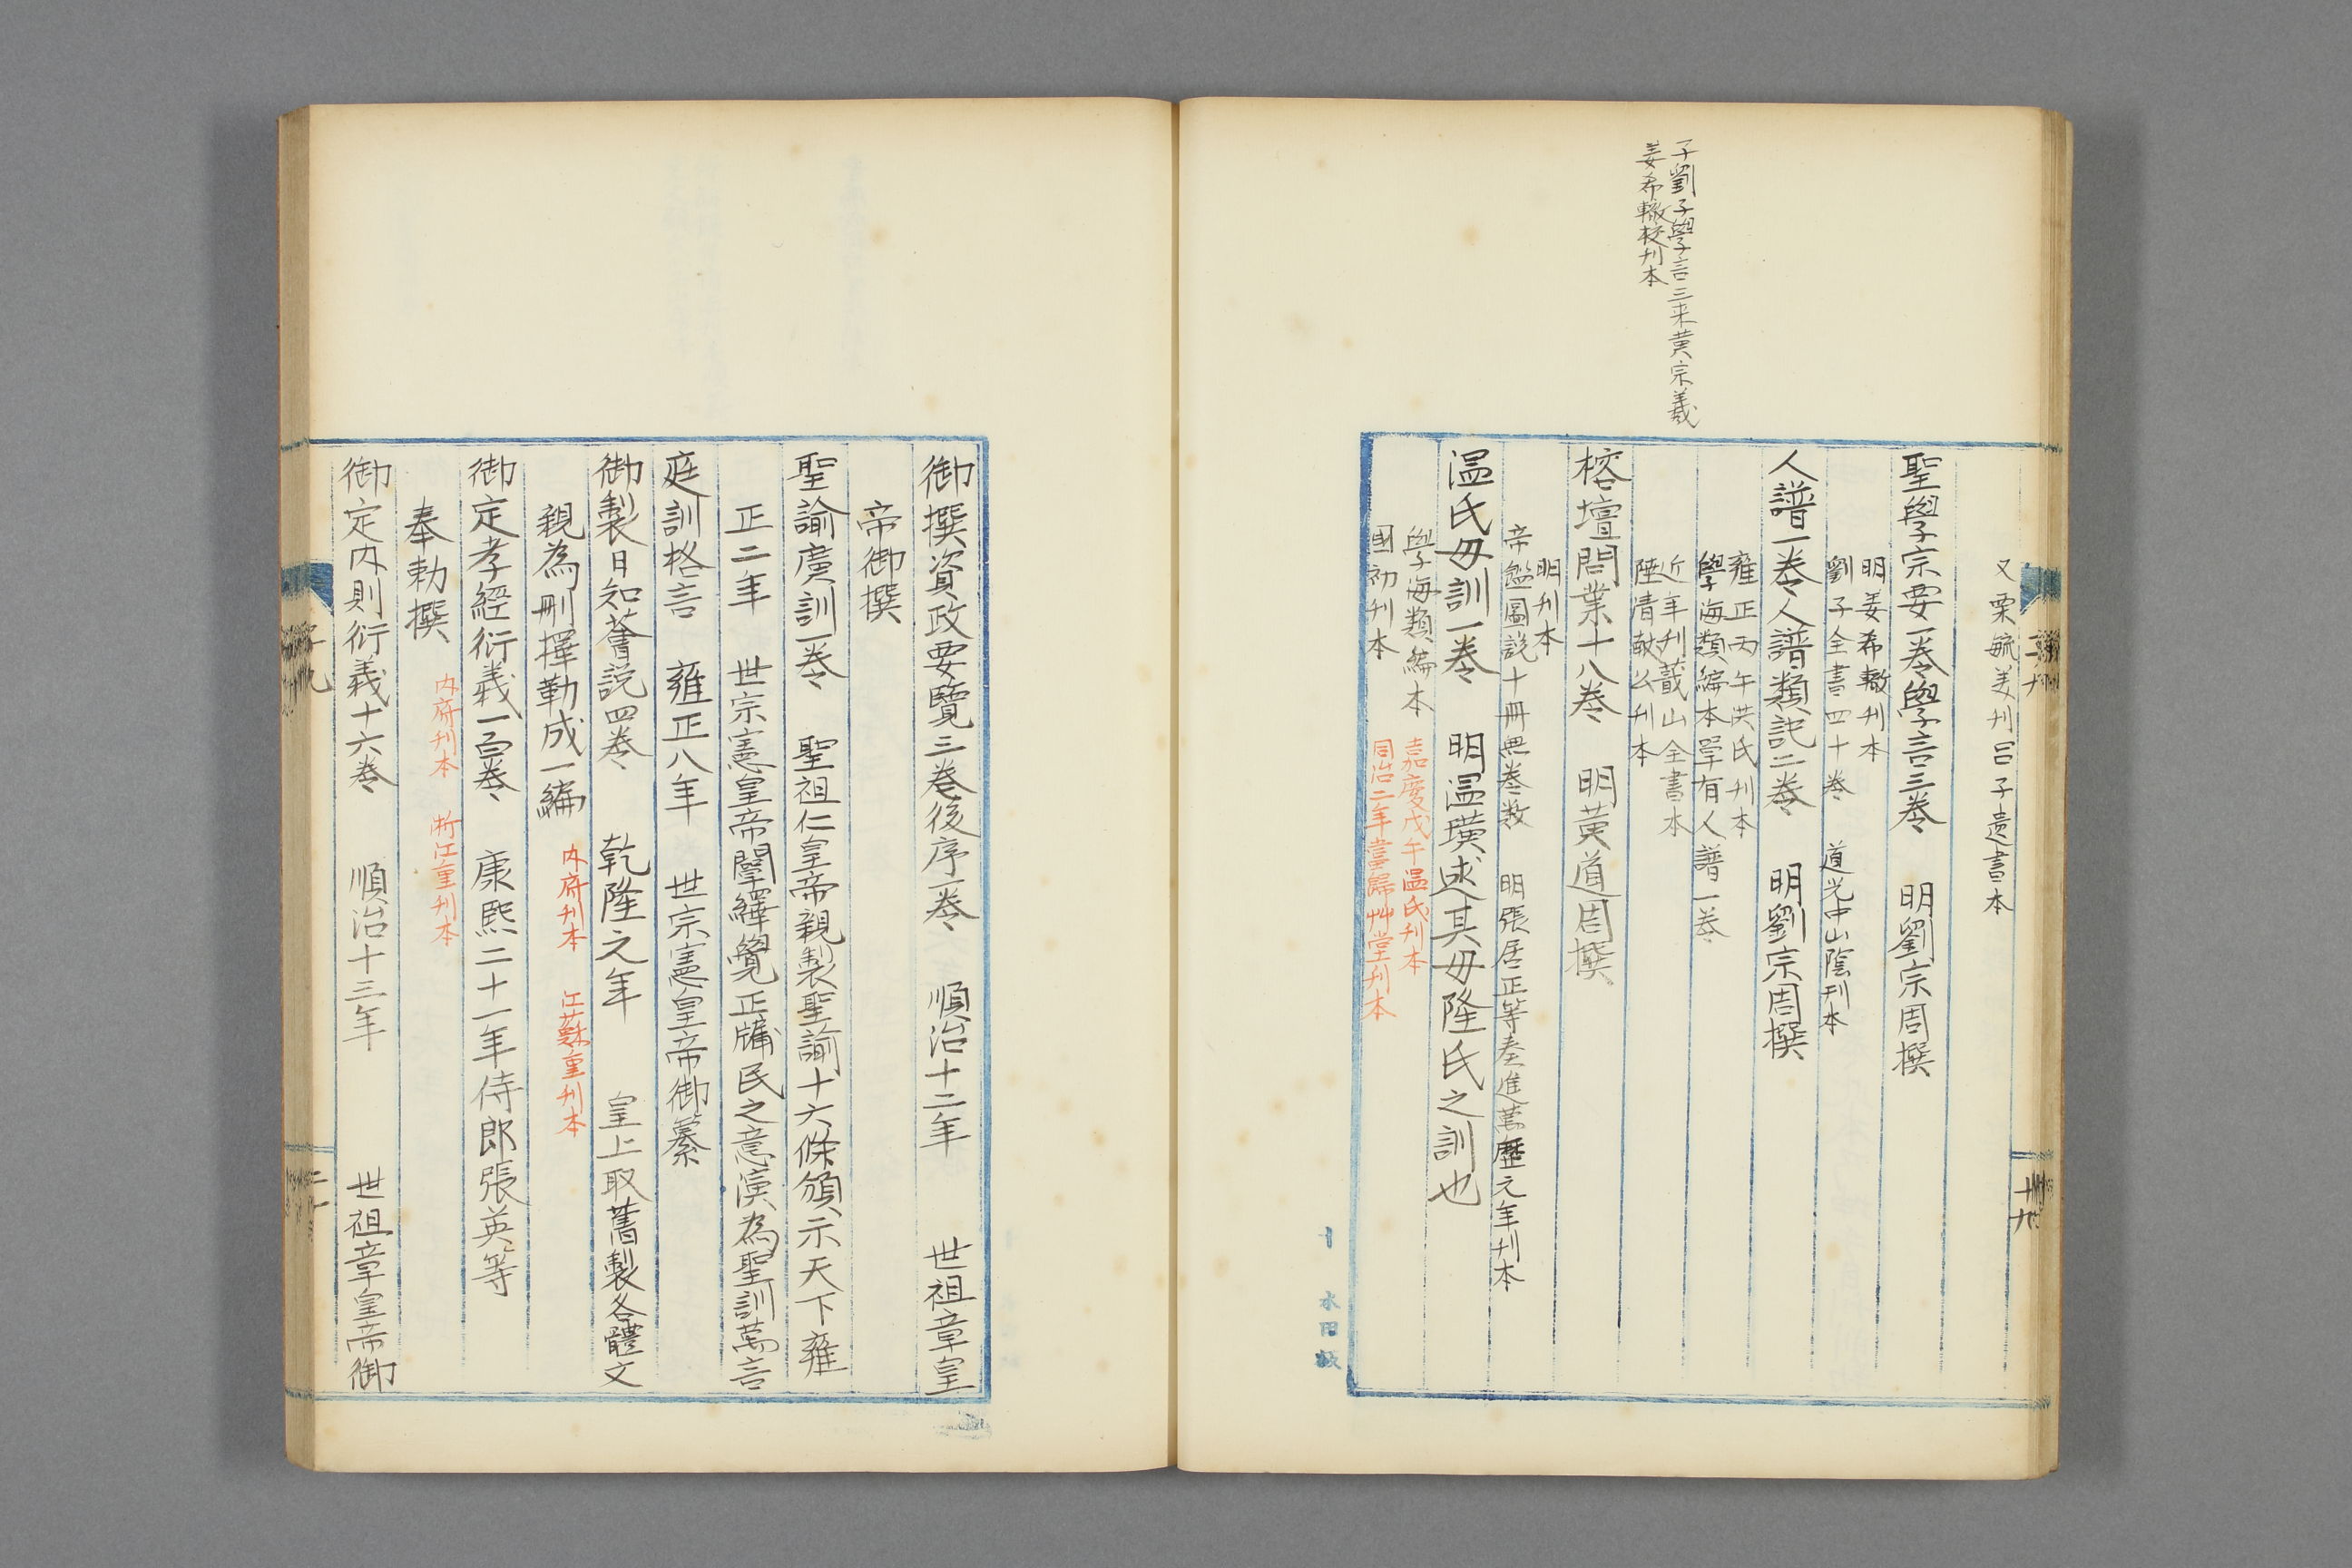 子劉子學言三来黄宗羲
姜希轍校刊本
又栗毓美刊呂子遺書本
聖學宗要一卷學言三卷　明劉宗周撰
明姜希轍刊本
劉子全書四十卷　道光中山陰刊本
人譜一卷人譜類記二卷　明劉宗周撰
雍正丙午洪氏刊本
學海類編本學有人譜一卷
近年刊蕺山全書本
陸清献公刊本
榕壇問業十八卷　明黄道周撰
明刊本
帝鑑圖説十冊無卷数　明張居正等奏進萬歷元年刊本
温氏母訓一卷　明温璜述其母陸氏之訓也
學海類編本　嘉慶戊午温氏刊本
國初刊本　同治二年 歸艸堂刊本
御撰資政要覽三卷後序一卷　順治十二年　世祖章皇
帝御撰
聖諭廣訓一卷　聖祖仁皇帝親製聖諭十六條頒示天下雍
正二年　世宗憲皇帝闡繹覺正牖民之意演為聖訓萬言
庭訓格言　雍正八年　世宗憲皇帝御纂
御製日知薈説四卷　乾隆之年　皇上取舊製各體文
親為刪擇勒成一編　内府刊本　江蘇重刊本
御定孝經衍義一百卷　康熙二十一年侍郎張英等
奉勅撰　内府刊本　浙江重刊本
御定内則衍義十六卷　順治十三年　世祖章皇帝御
子九